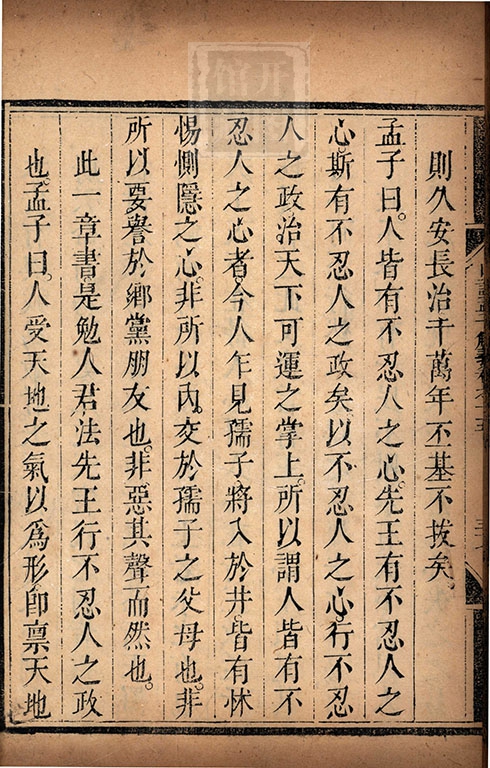 則久安長治千萬年丕基不拔矣。
孟子曰。人皆有不忍人之心。先王有不忍人之
心。斯有不忍人之政矣。以不忍人之心。行不忍
人之政。治天下可運之掌上。所以謂人皆有不
忍人之心者。今人乍見孺子將入於井。皆有怵
惕惻隱之心。非所以內交於孺子之父母也。非
所以要譽於鄉黨朋友也。非惡其聲而然也。
此一章書是勉人君法先王行不忍人之政
也。孟子曰。人受天地之氣以爲形。卽禀天地